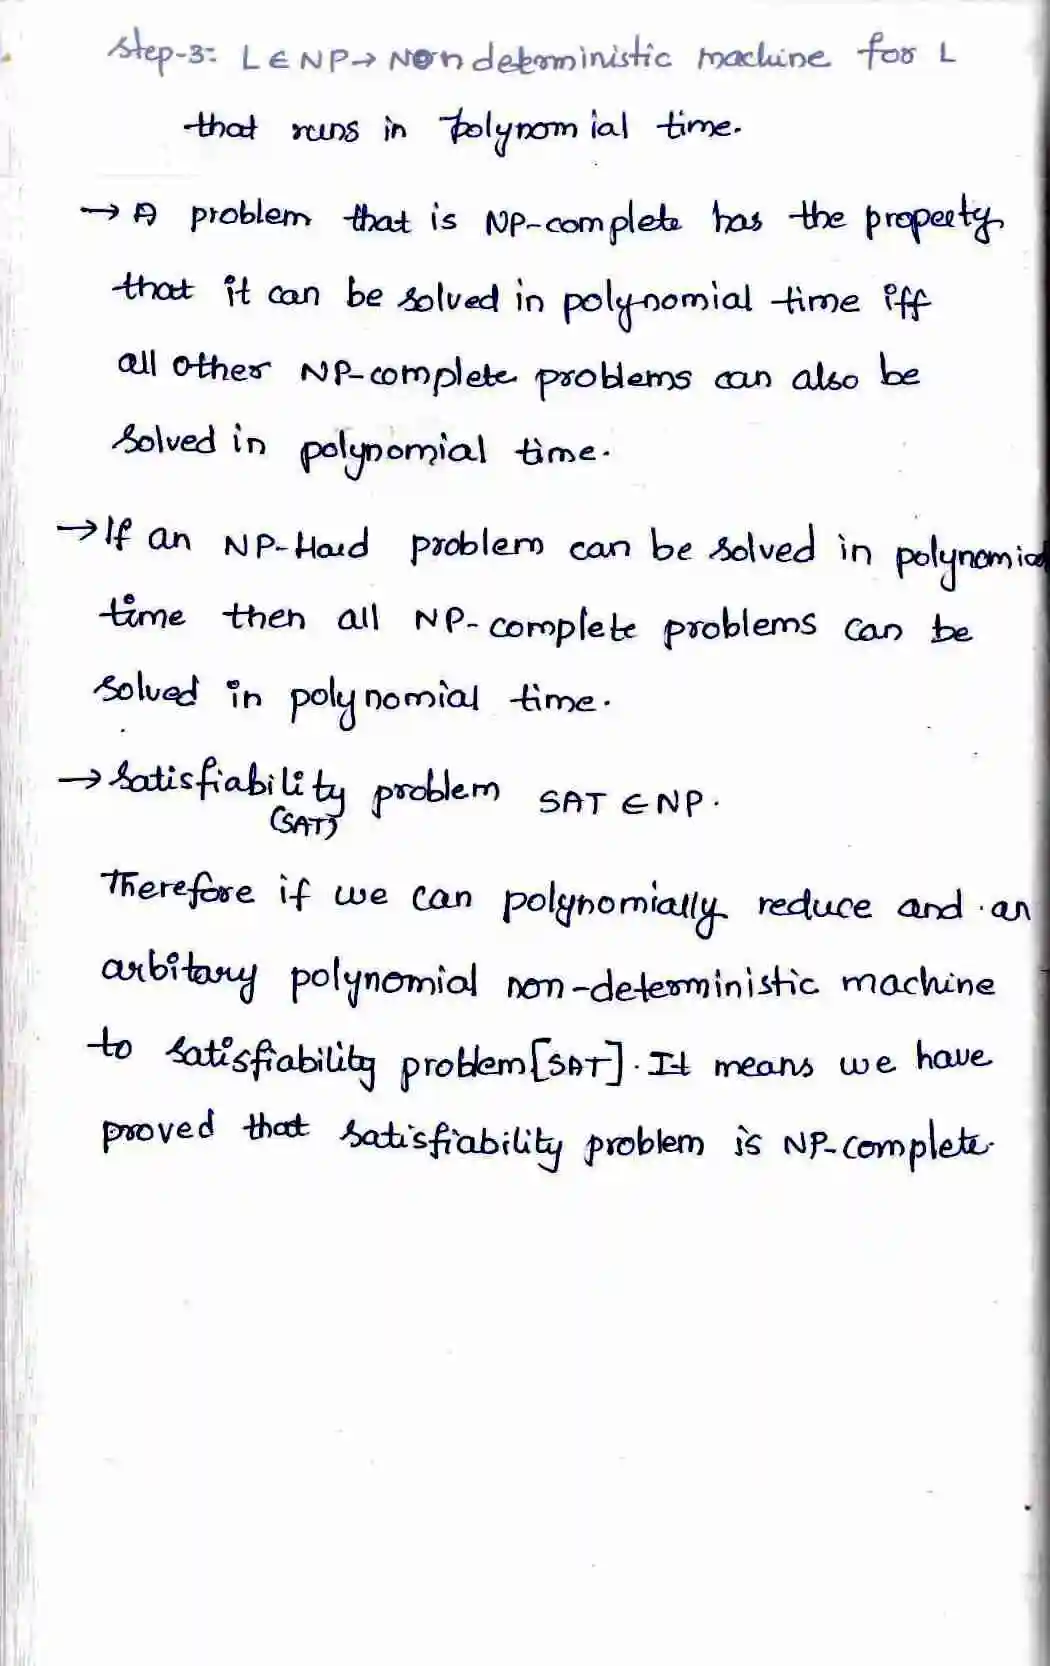 Step-3: L ∈ NP → Non deterministic machine for L
that runs in polynomial time.
→ A problem that is NP-complete has the property
that it can be solved in polynomial time iff
all other NP-complete problems can also be
solved in polynomial time.
→ If an NP-Hard problem can be solved in polynomial
time then all NP-complete problems can be
solved in polynomial time.
→ Satisfiability problem SAT ∈ NP.
(SAT)
Therefore if we can polynomially reduce and an
arbitary polynomial non-deterministic machine
to satisfiability problem [SAT]. It means we have
proved that satisfiability problem is NP-complete.